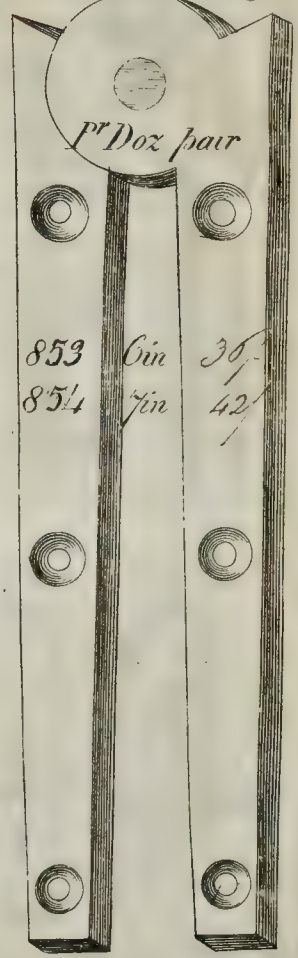 Pr Doz pair
853 6in 36/-
854 7in 42/